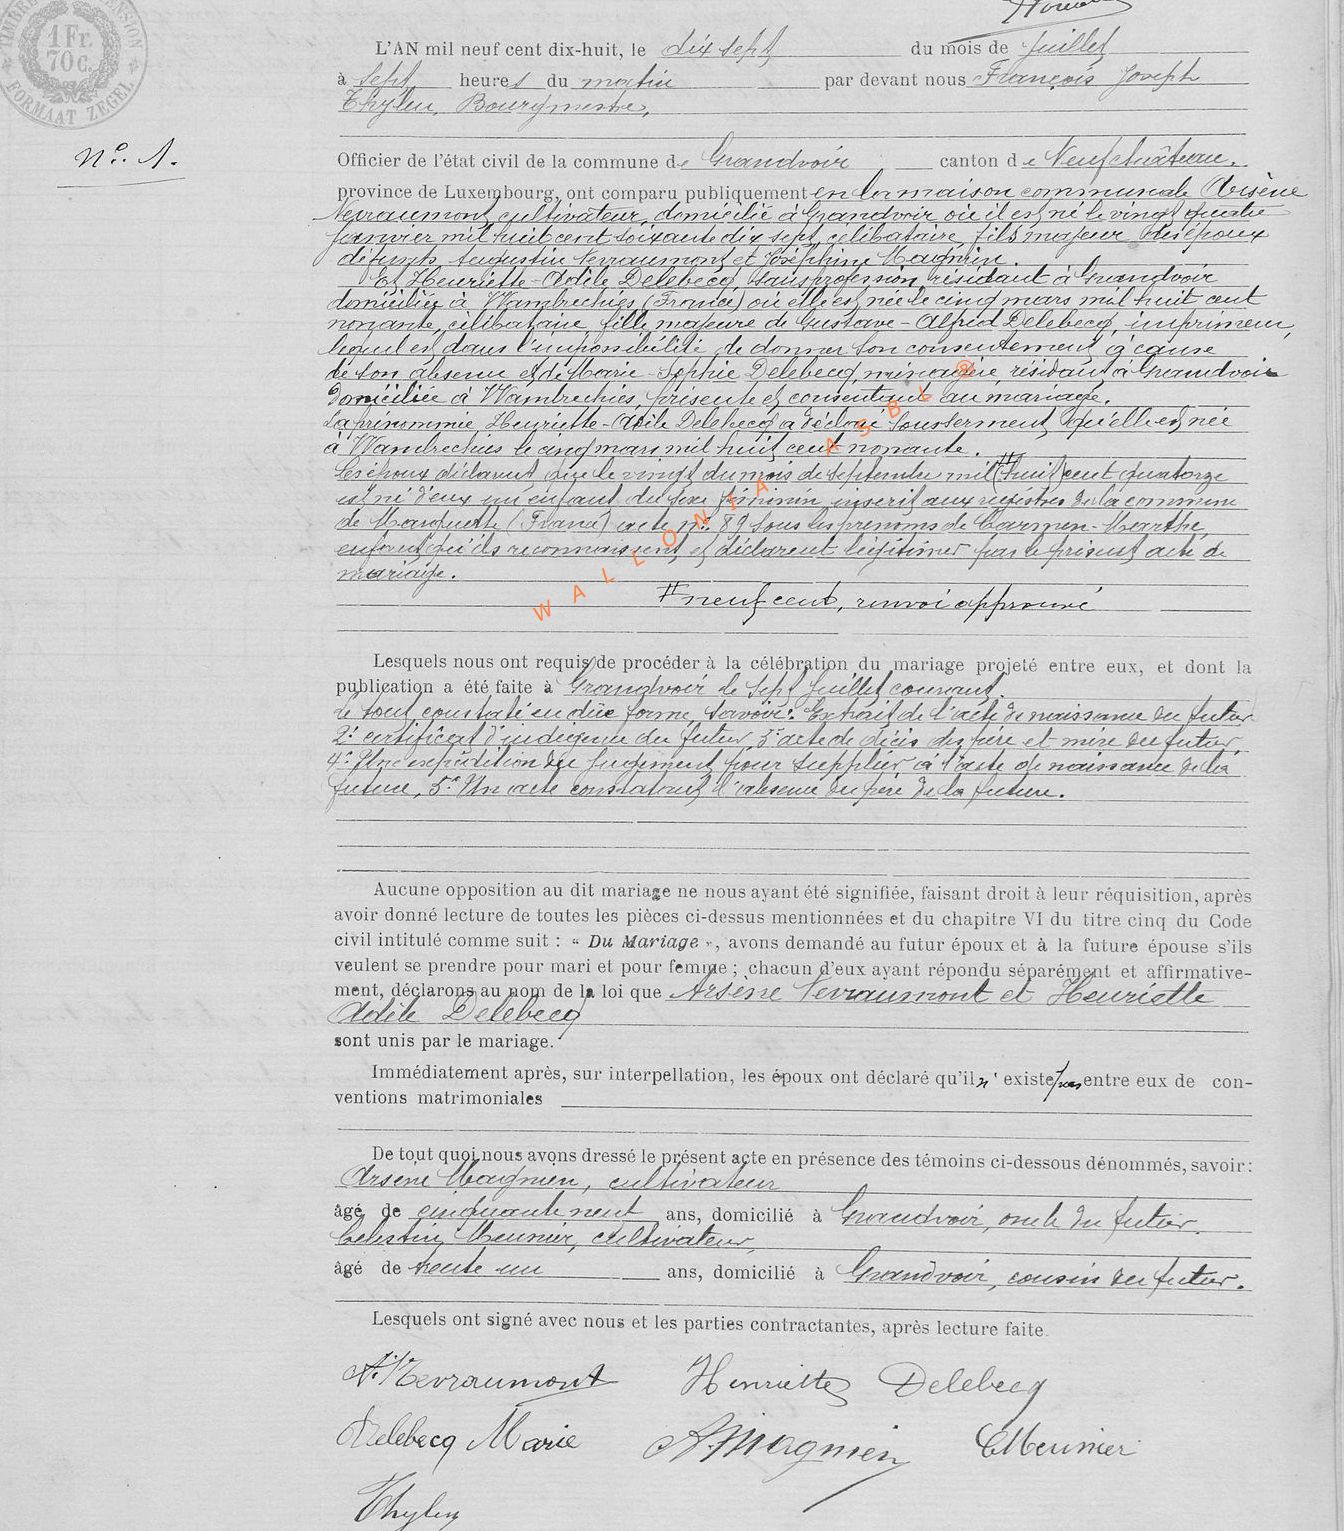 1 Fr.
70 c.
FORMAAT ZEGEL
N°. 1.
L'AN mil neuf cent dix-huit, le dix sept du mois de Juillet
à sept heures du matin par devant nous François Joseph
Bourgmestre,
Officier de l'état civil de la commune de Grandvoir canton de Neufchâteau,
province de Luxembourg, ont comparu publiquement en la maison communale Arsène
Nevraumont, cultivateur, domicilié à Grandvoir où il est né le vingt quatre
Janvier mil huit cent soixante dix sept, célibataire, fils majeur des époux
défunts Augustin Nevraumont et Joséphine Magnien.
Et Henriette-Adèle Delebecq, sans profession, résidant à Grandvoir
domiciliée à Wambrechies (France) où elle est née le cinq mars mil huit cent
nonante, célibataire, fille majeure de Gustave-Alfred Delebecq, imprimeur,
lequel est dans l'impossibilité de donner son consentement à cause
de son absence et de Marie-Sophie Delebecq, ménagère, résidant à Grandvoir
domiciliée à Wambrechies, présente et consentant au mariage.
La prénommée Henriette-Adèle Delebecq a déclaré sous serment qu'elle est née
à Wambrechies le cinq mars mil huit cent nonante.
Les époux déclarent que le vingt du mois de septembre mil # huit cent quatorze
est né d'eux un enfant du sexe féminin inscrit aux registres de la commune
de Marquette (France) acte n° 89 sous les prénoms de Carmen-Marthe,
enfant qu'ils reconnaissent et déclarent légitimer par le présent acte de
mariage.
# neuf cent, renvoi approuvé
WALLONIA ASBL ®
Lesquels nous ont requis de procéder à la célébration du mariage projeté entre eux, et dont la
publication a été faite à Grandvoir le sept Juillet courant.
Le tout constaté en due forme, savoir: Extrait de l'acte de naissance du futur
2° certificat d'indigence du futur, 3° acte de décès des père et mère du futur,
4° Une expédition du jugement pour suppléer à l'acte de naissance de la
future, 5° Un acte constatant l'absence du père de la future.
Aucune opposition au dit mariage ne nous ayant été signifiée, faisant droit à leur réquisition, après
avoir donné lecture de toutes les pièces ci-dessus mentionnées et du chapitre VI du titre cinq du Code
civil intitulé comme suit : « Du Mariage », avons demandé au futur époux et à la future épouse s'ils
veulent se prendre pour mari et pour femme ; chacun d'eux ayant répondu séparément et affirmative-
ment, déclarons au nom de la loi que Arsène Nevraumont et Henriette
Adèle Delebecq
sont unis par le mariage.
Immédiatement après, sur interpellation, les époux ont déclaré qu'il n' existe pas entre eux de con-
ventions matrimoniales
De tout quoi nous avons dressé le présent acte en présence des témoins ci-dessous dénommés, savoir :
Arsène Magnien, cultivateur
âgé de cinquante neuf ans, domicilié à Grandvoir, oncle du futur.
Célestin Meunier, cultivateur,
âgé de trente un ans, domicilié à Grandvoir, cousin du futur.
Lesquels ont signé avec nous et les parties contractantes, après lecture faite.
A. Nevraumont Henriette Delebecq
Delebecq Marie A. Magnien C Meunier